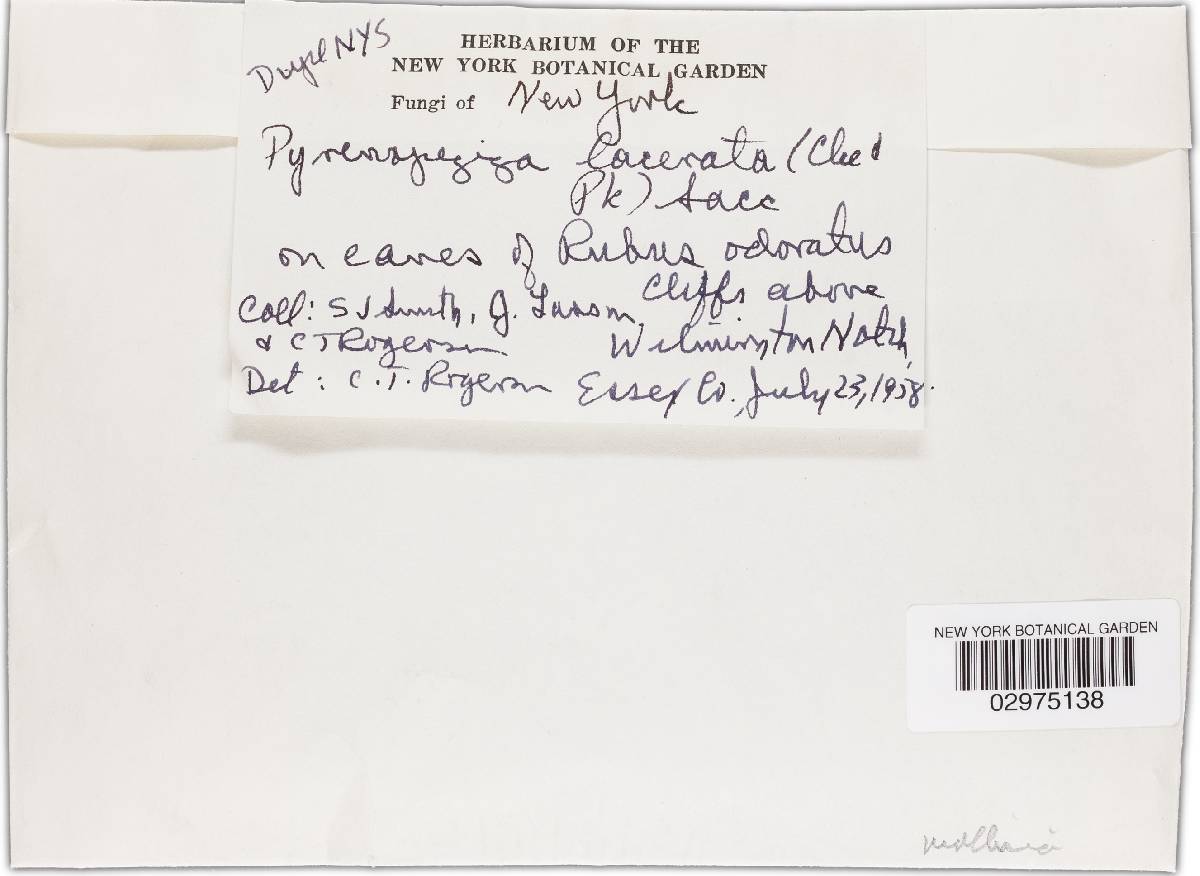 Dupl NYS
HERBARIUM OF THE
NEW YORK BOTANICAL GARDEN
Fungi of New York
Pyrenopeziza lacerata (Cke &
Pk) Sacc
on canes of Rubus odoratus
Cliffs above
Coll: S J Smith, J.
& C T Rogerson Wilmington Notch,
Det: C. T. Rogerson Essex Co., July 23, 1958.
NEW YORK BOTANICAL GARDEN
02975138